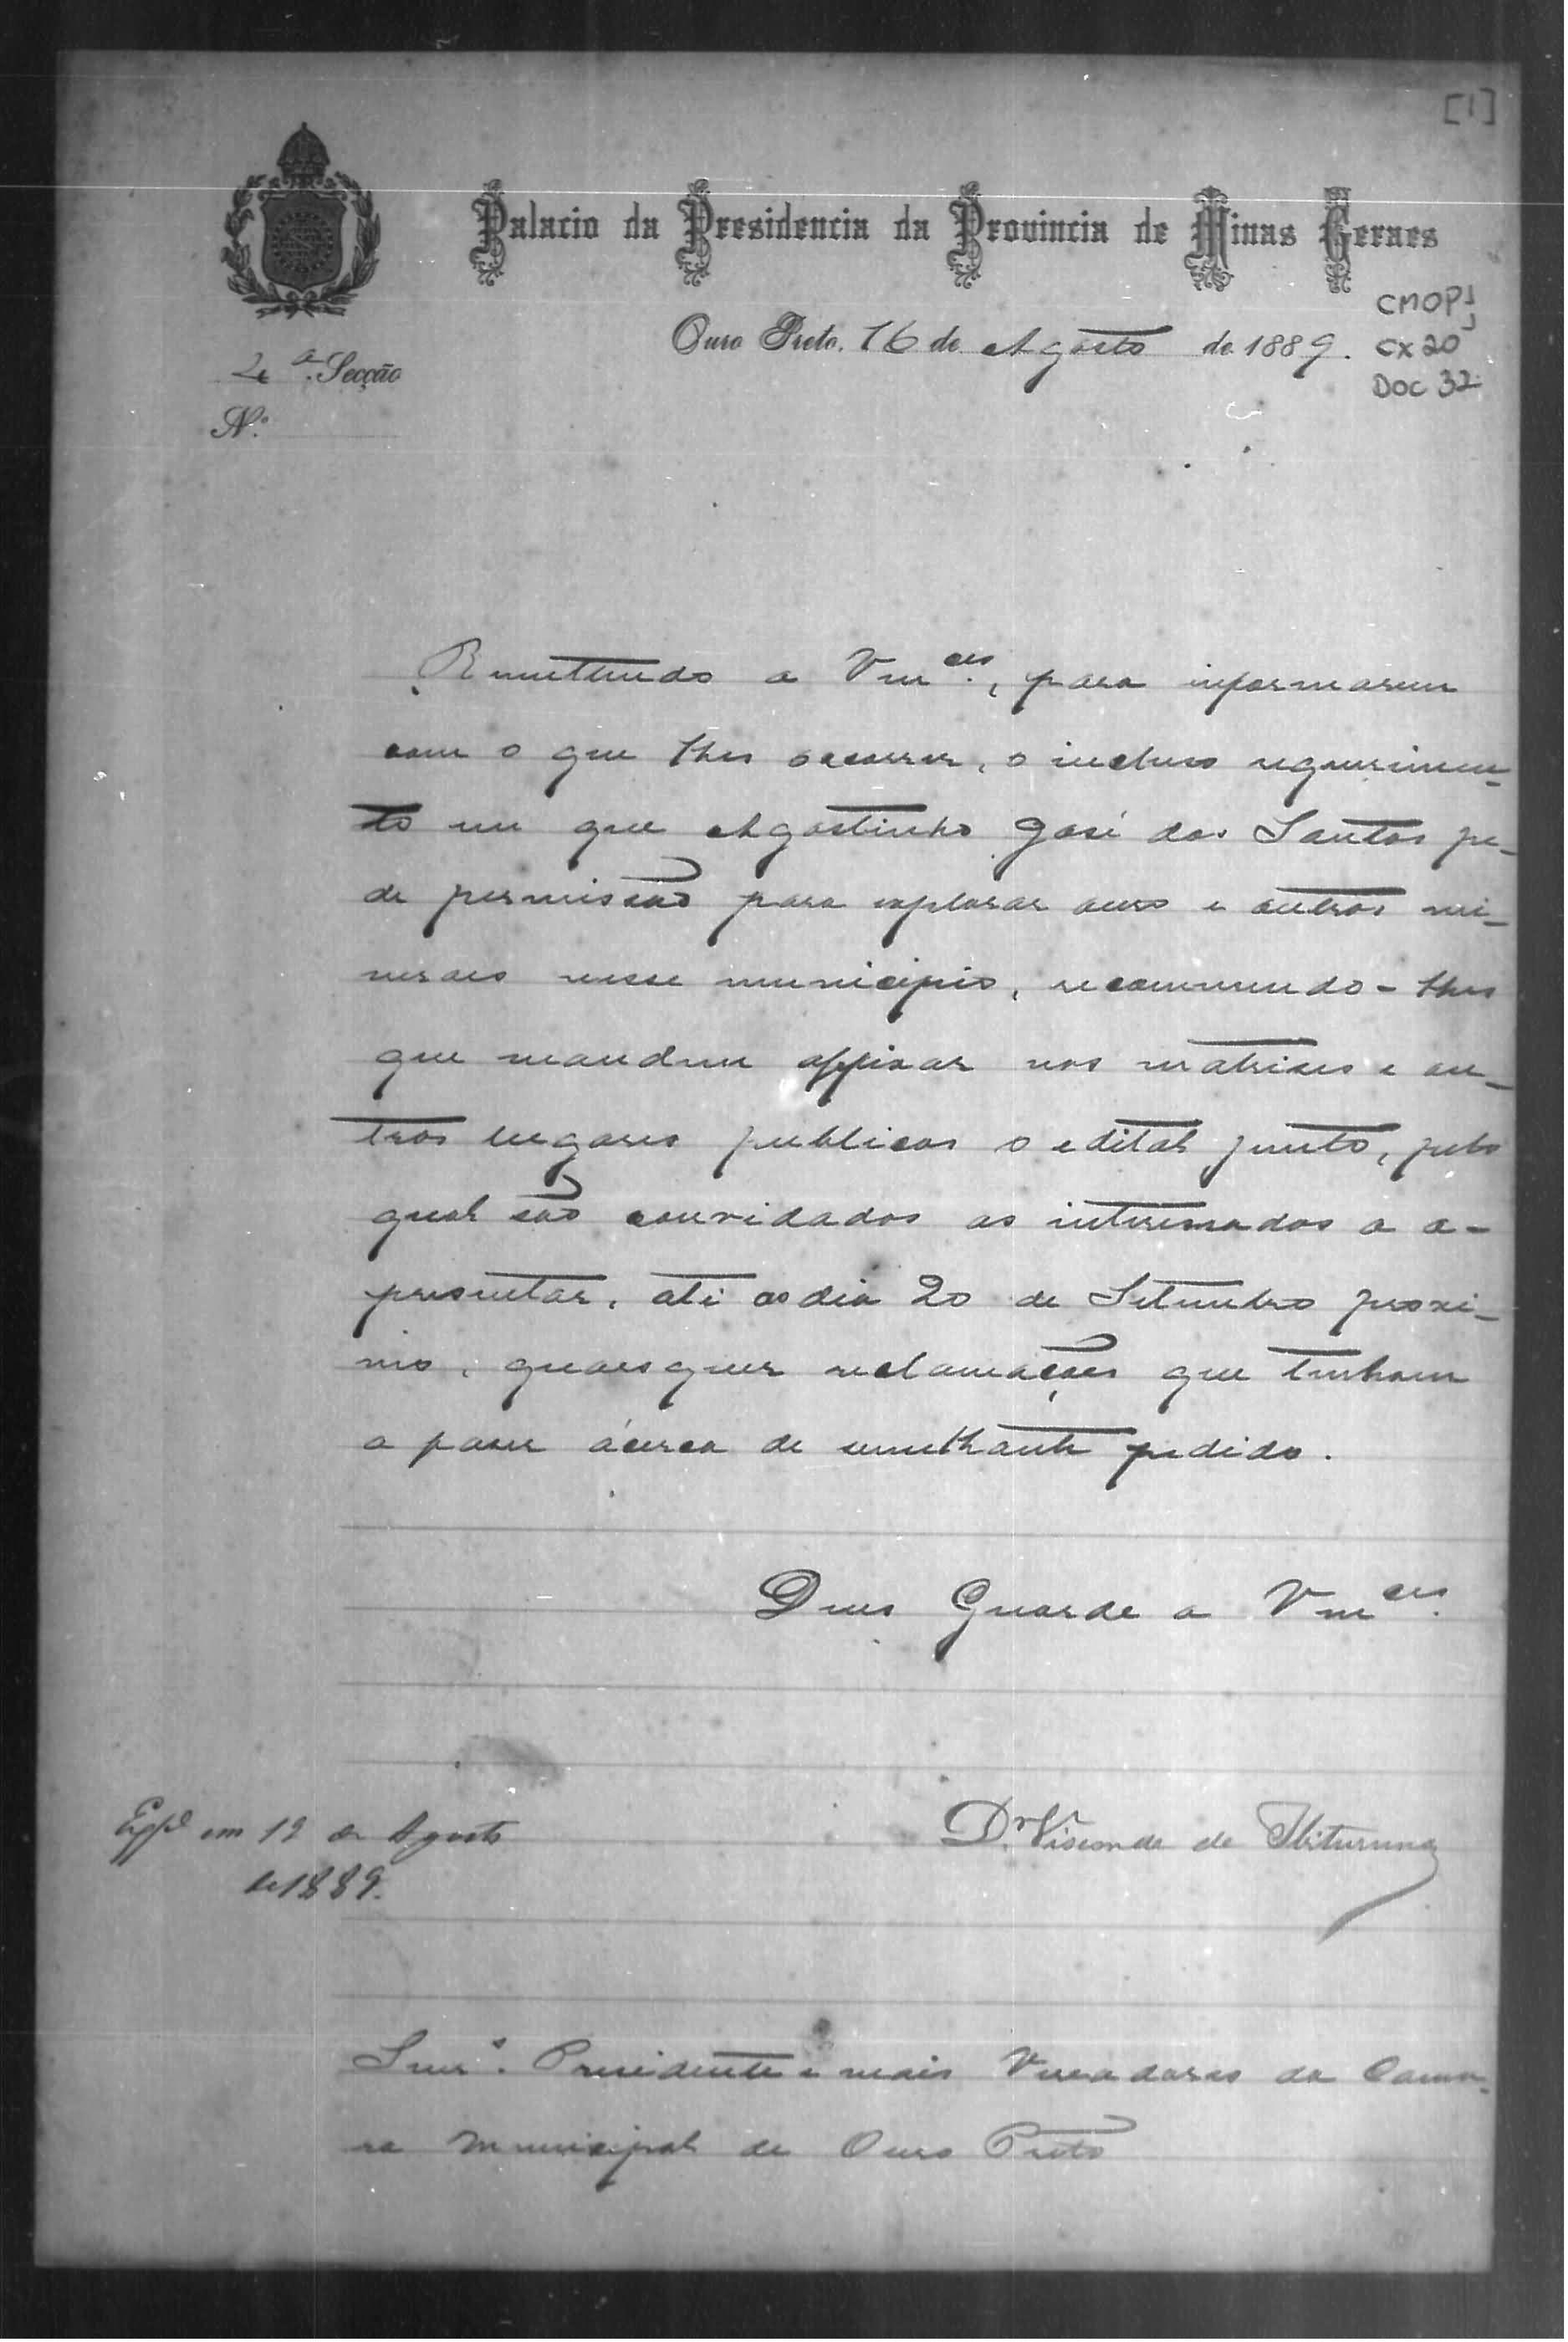 [1]
Palacio da Presidencia da Provincia de Minas Geraes
CMOP
Ouro Preto, 16 de Agosto de 1889.
CX 20
4ª Secção
DOC 32
N.º
Remettendo a Vm.ces, para informarem
com o que lhes occorrer, o incluso requerimen-
to em que Agostinho José dos Santos pe-
de permissão para explorar ouro e outros mi-
neraes nesse municipio, recommendo-lhes
que mandem affixar nas matrizes e ou-
tros lugares publicos o edital junto, pelo
qual são convidados os interessados a a-
presentar, até ao dia 20 de Setembro proxi-
mo, quaesquer reclamações que tenham
a fazer ácerca de semelhante pedido.
Deus Guarde a Vm.ces
Dr. Visconde de Ibituruna
em 19 de Agosto
de 1889.
Snrs. Presidente e mais Vereadores da Cama-
ra Municipal de Ouro Preto